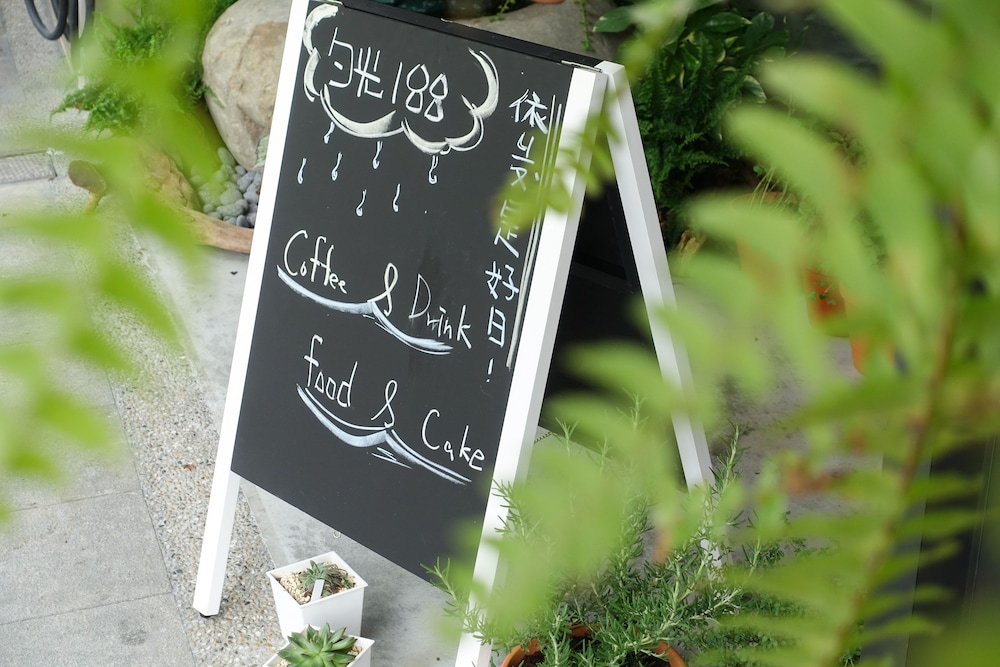 勻光188
依岁是好日!
Coffee & Drink
food & Cake